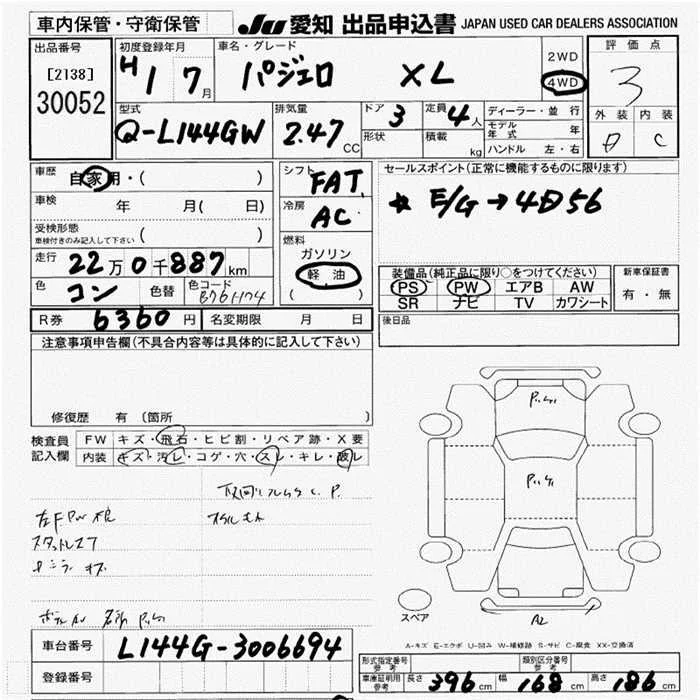 車内保管・守衛保管
JU 愛知 出品申込書 JAPAN USED CAR DEALERS ASSOCIATION
出品番号
[2138]
30052
初度登録年月
H 1 7月
車名・グレード
パジェロ XL
2WD
4WD
評価点
3
外装 内装
D C
型式
Q-L144GW
排気量
2.47 CC
ドア 3
定員 4人
形状
積載 kg
ディーラー・並行
モデル年式 年
ハンドル 左・右
車歴 自家用・( )
車検 年 月( 日)
受検形態
車検付きのみ記入して下さい ( )
走行 22万0千887km
色 コン 色替 色コード
シフト FAT
冷房 AC
燃料
ガソリン
軽油
( )
セールスポイント(正常に機能するものに限ります)
* E/G→4D56
装備品(純正品に限り○をつけてください)
PS PW エアB AW
SR ナビ TV カワシート
新車保証書
有・無
R券 6360円 名変期限 月 日
後日品
注意事項申告欄(不具合内容等は具体的に記入して下さい)
修復歴 有(箇所
検査員記入欄
FW キズ・飛石・ヒビ割・リペア跡・X要
内装 キズ・汚レ・コゲ・穴・スレ・キレ・破レ
左F PW
スペア
A2
A-キズ E-エクボ U-凹み W-補修跡 S-サビ C-腐食 XX-交換済
車台番号 L144G-3006694
登録番号
形式指定番号 参考
類別区分番号 参考
車庫証明用 参考 長さ 396cm 幅 168cm 高さ 186cm